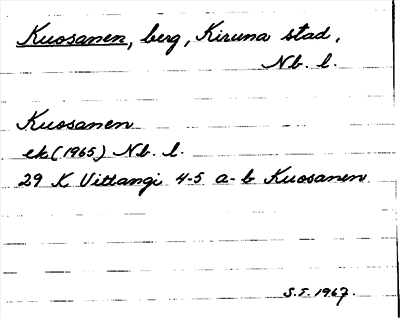 Kuosanen, berg, Kiruna stad,
Nb. l.
Kuosanen
ek (1965) Nb. l.
29 K Vittangi 4-5 a-b Kuosanen
S.F. 1967.